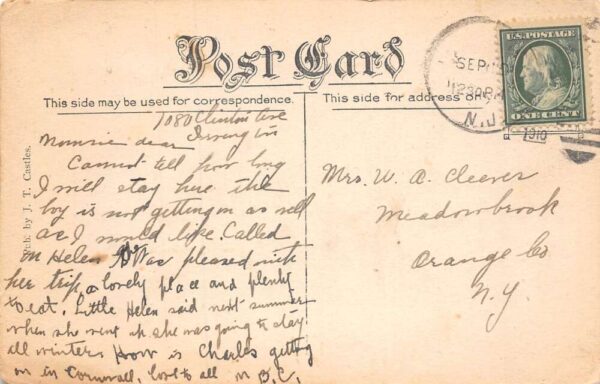 Post Card
This side may be used for correspondence.
This side for address on
SEP
1230P
N.J.
1910
U.S. POSTAGE
ONE CENT
Pub. by J. T. Castles.
1080 Clinton Ave
Irvington
dear
Cannot tell how long
I will stay here the
boy is not getting on as well
as I would like. Called
on Helen Was pleased with
her trip, a lovely place and plenty
to eat. Little Helen said next summer
when she went up she was going to stay
all winter. How is Charles getting
on in Cornwall, love to all M.B.C.
Mrs. W. A. Cleever
Meadowbrook
Orange Co
N.Y.